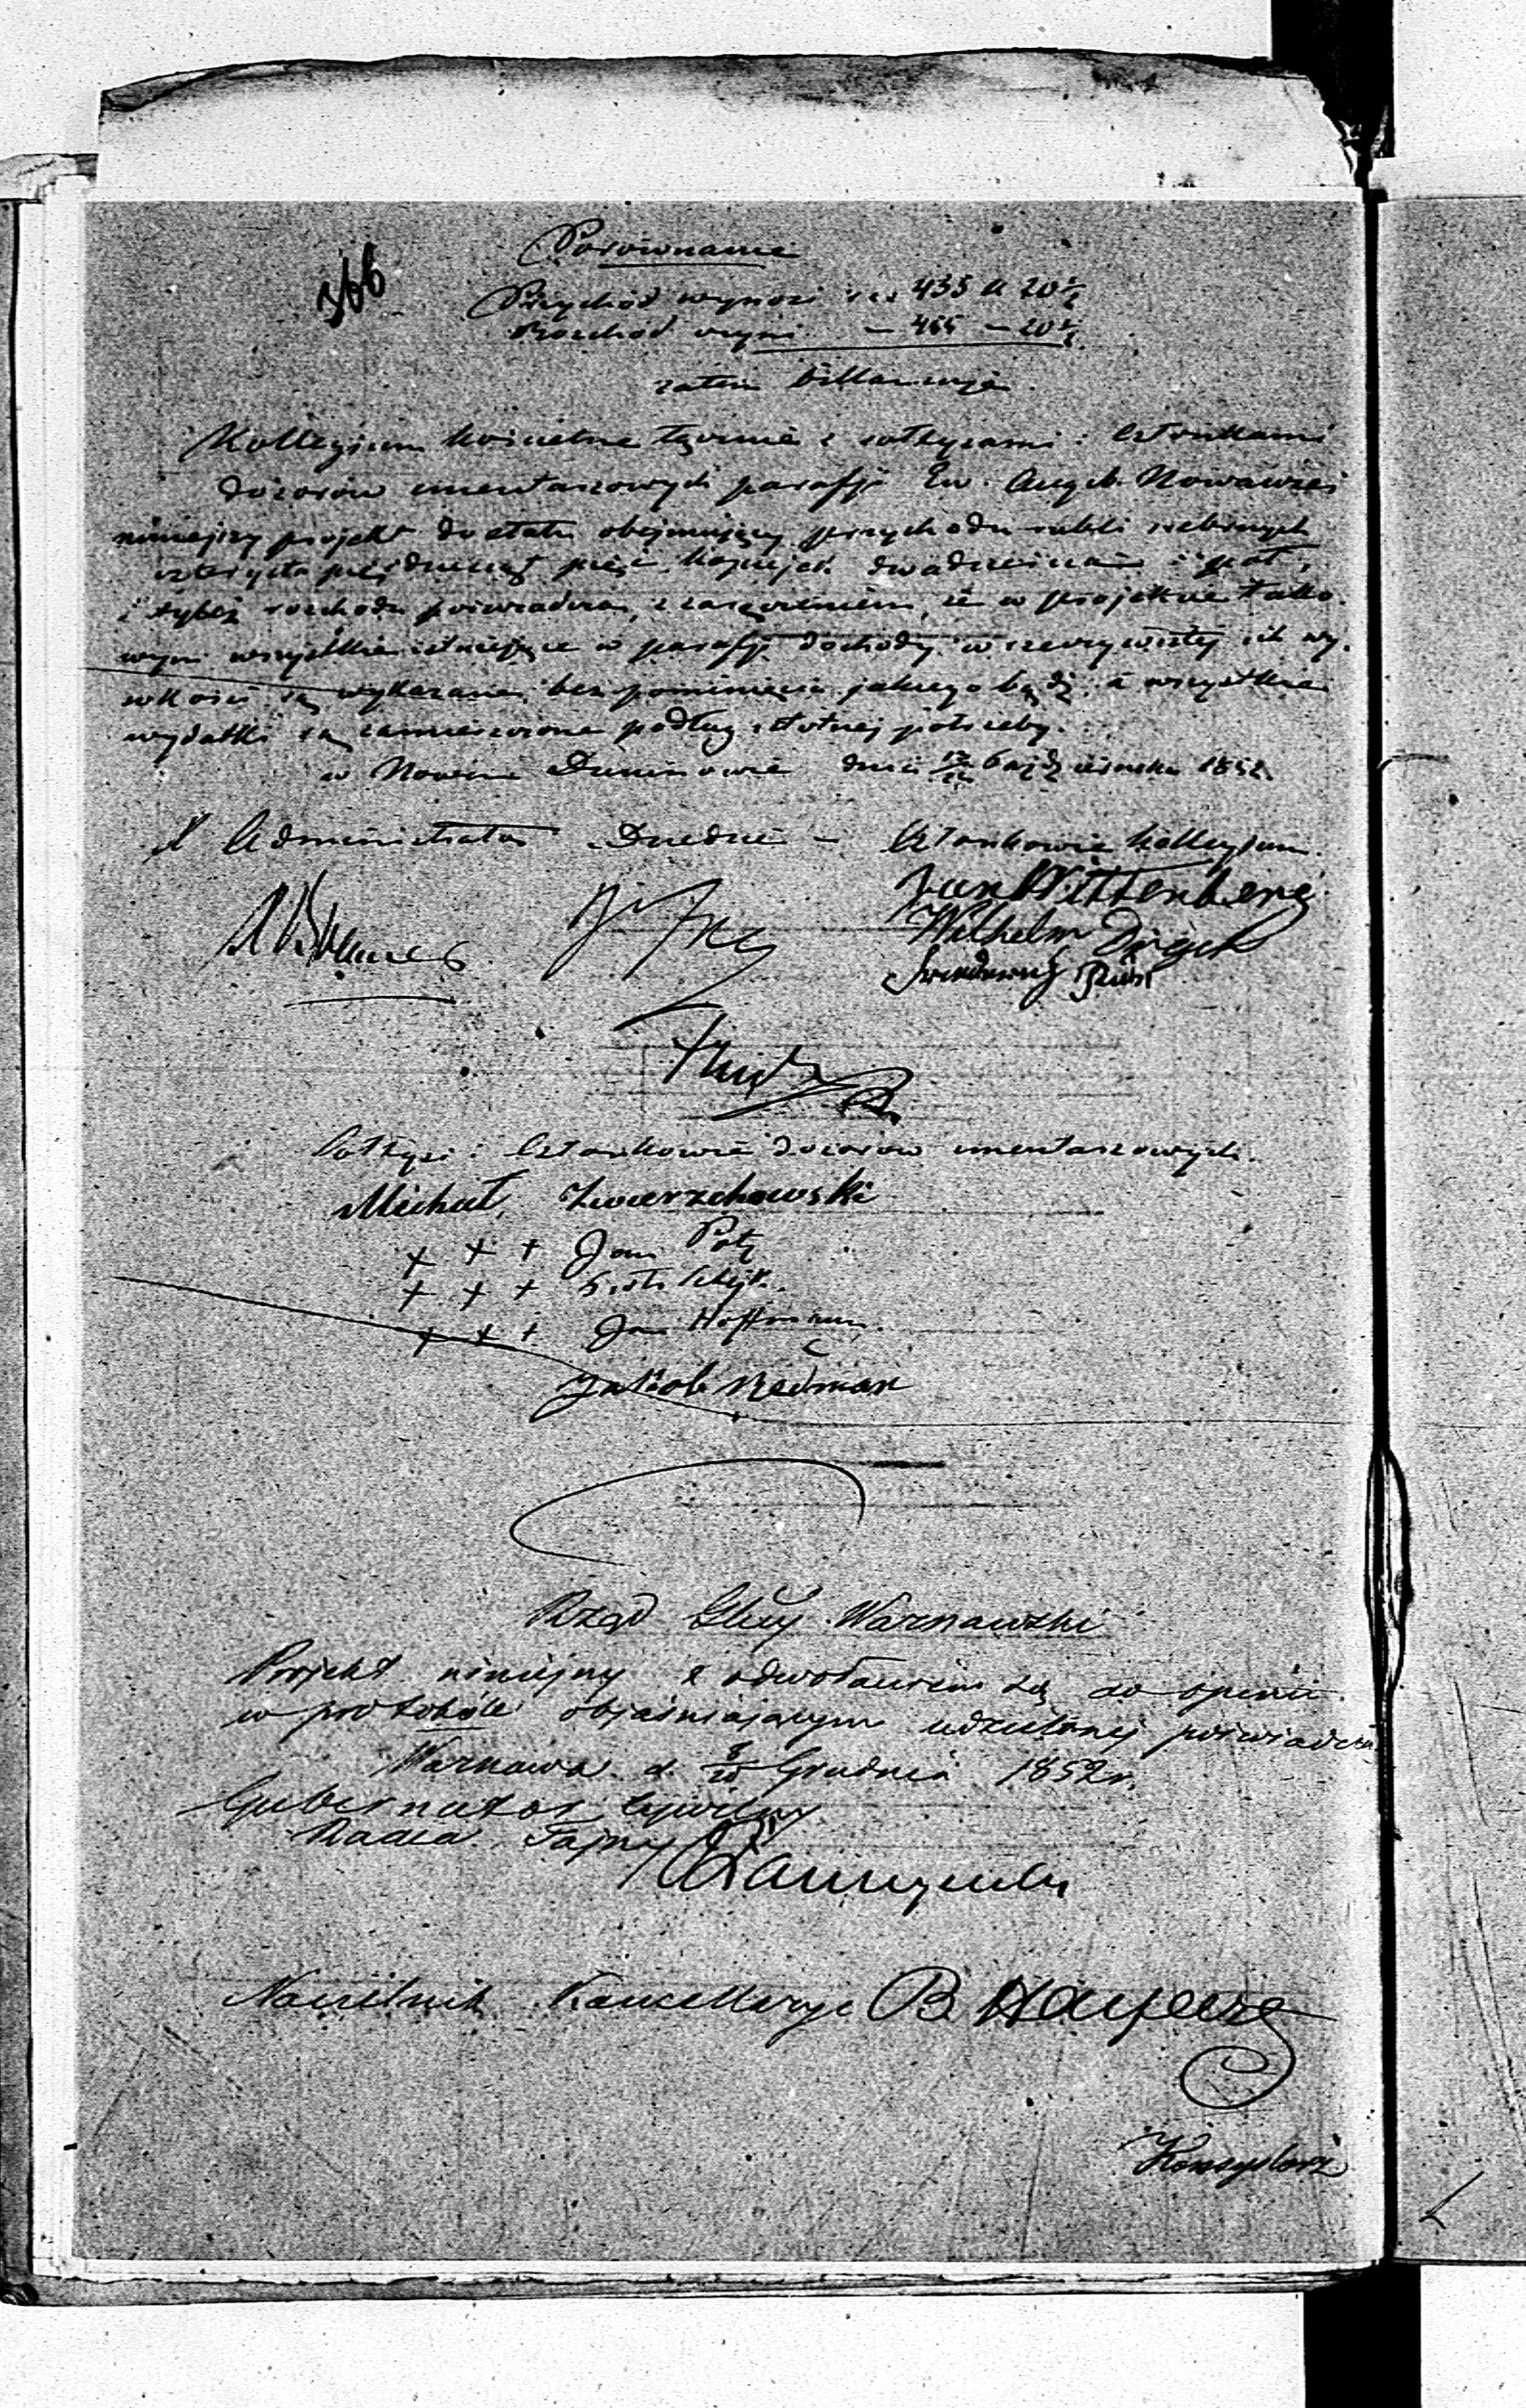 366
Porównanie
Przychód wynosi rsr 455 k 20 ½
Rozchód wyni. — 455 — 20 ½
zatem billansuje
Kollegium kościelne łącznie z sołtysami i członkami
dozorów cmentarzowych parafji Ew. Augsb. Nowawieś
niniejszy projekt do etatu obejmujący przychodu rubli srebrnych
czterysta pięćdziesiąt pięć kopiejek dwadzieścia i pół,
i tyleż rozchodu poświadcza, z zaręczeniem, że w projekcie tako-
wym wszystkie istniejące w parafji dochody w rzeczywistej ich wy-
sokości są wykazane, bez pominięcia jakiego bądź, a wszystkie
wydatki są zamieszczone podług istotnej potrzeby.
w Nowym Duninowie dnia Października 1852.
Administrator Dziedzic — Członkowie kollegium.
Jan Wittenberg
Wilhelm
Sołtysi i Członkowie dozorów cmentarzowych.
Michał Zwierzchowski
+ + + Jan Potz
+ + +
+ + + Jan Hoffmann
Jakob Redman
Rząd Gbny Warszawski
Projekt niniejszy z odwołaniem się do opinii
w protokóle objaśniającym udzielonej poświadcza
Warszawa d. 8/20 Grudnia 1852 r.
Gubernator Cywilny
Radca Tajny
Naczelnik Kancellaryi B.